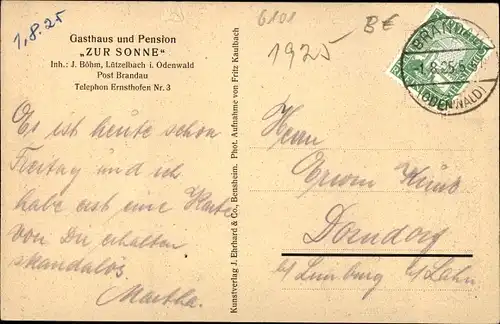 1.8.25
Gasthaus und Pension
„ZUR SONNE"
Inh.: J. Böhm, Lützelbach i. Odenwald
Post Brandau
Telephon Ernsthofen Nr. 3
Es ist heute schon
Freitag und ich
habe erst eine Karte
von Du erhalten
skandalös.
Martha.
Kunstverlag J. Ehrhard & Co., Bensheim. Phot. Aufnahme von Fritz Kaulbach
6101
BE
1925
BRAN
1.8.25
(ODENWALD)
Herrn
Erwin
Dorndorf
b/ Limburg a/ Lahn